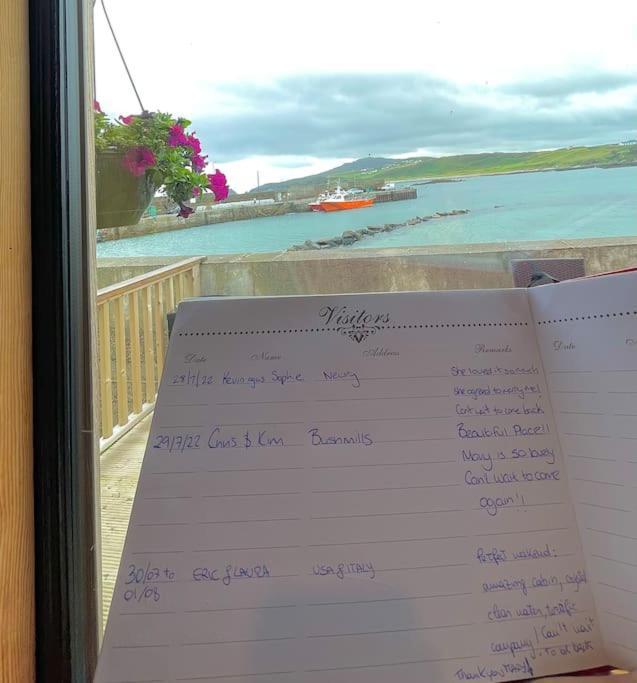 Visitors
Date Name Address Remarks Date
28/7/22 Kevin Sophie Newry She loved it so much
she agreed to marry me!
Cant wait to come back
29/7/22 Chris & Kim Bushmills Beautiful Place!!
Mary is so busy
Can't wait to come
again!!
30/07 to ERIC & LAURA USA & ITALY Perfect weekend:
01/08 amazing cabin, crystal
clean water, terrific
company! Can't wait
to be back
Thank you MARY!